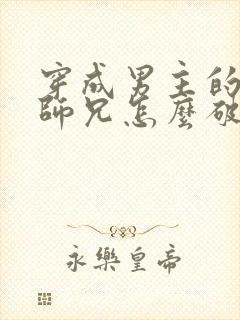 穿成男主的
師兄怎麼破
永樂皇帝